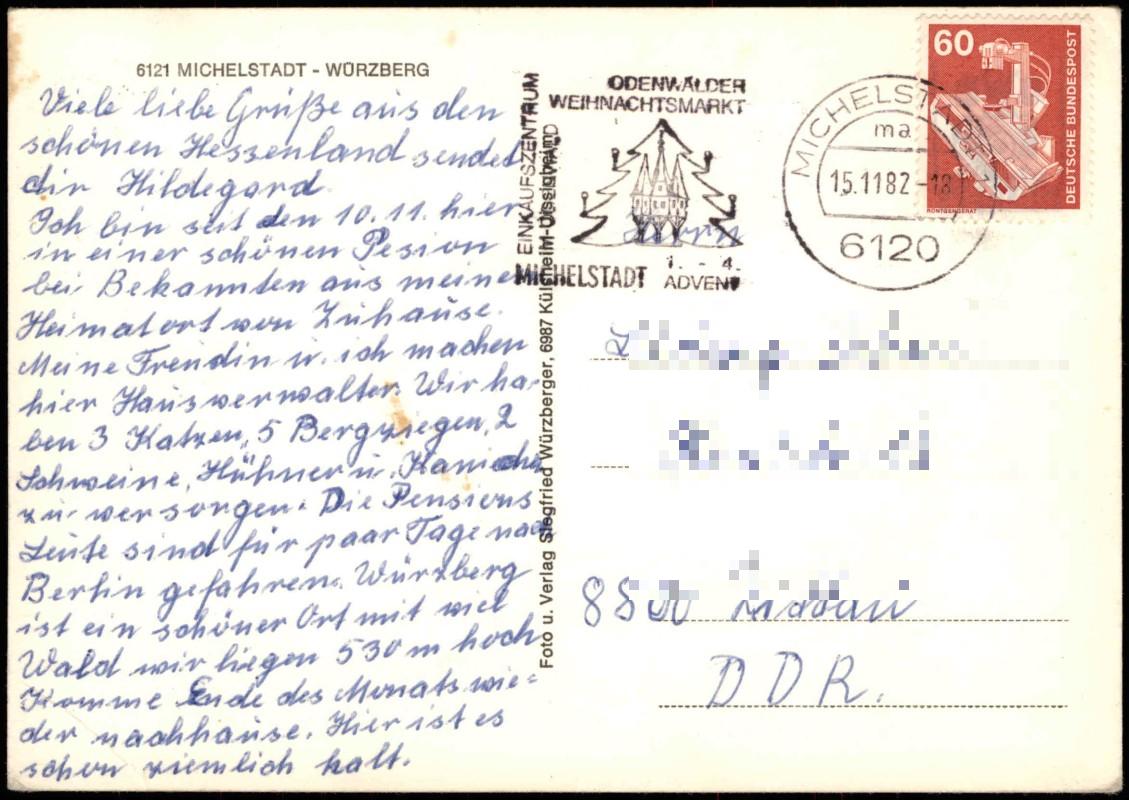 6121 MICHELSTADT - WÜRZBERG
Viele liebe Grüße aus den
schönen Hessenland sendet
dir Hildegard.
Ich bin seit den 10.11. hier
in einer schönen Pesion
bei Bekannten aus meinen
Heimatort von Zuhause.
Meine Freudin u. ich machen
hier Hausverwalter. Wir ha-
ben 3 Katzen, 5 Bergziegen, 2
Schweine, Hühner u. Kaniche
zu versorgen. Die Pensions
Leute sind für paar Tage nach
Berlin gefahren. Würzberg
ist ein schöner Ort mit viel
Wald wir liegen 530 m hoch
Komme Ende des Monats wie=
der nachhause. Hier ist es
schon ziemlich kalt.
Foto u. Verlag Siegfried Würzberger, 6987 Külsheim-Uissigheim
EINKAUFSZENTRUM
ODENWÄLDER
WEIHNACHTSMARKT
MICHELSTADT
1. - 4.
ADVENT
MICHELSTADT
ma
15.1182-18
6120
60
DEUTSCHE BUNDESPOST
RÖNTGENGERÄT
Herrn
DDR.